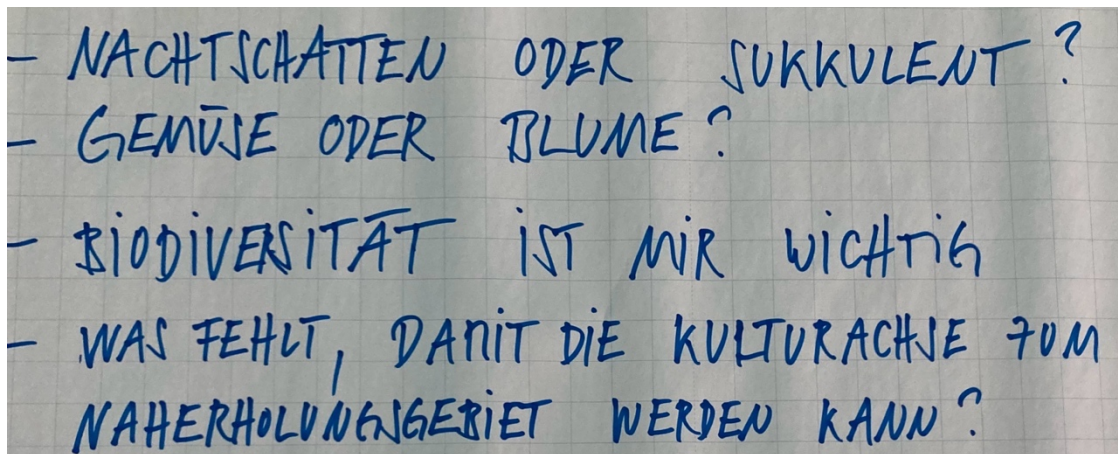 - NACHTSCHATTEN ODER SUKKULENT?
- GEMÜSE ODER BLUME?
- BIODIVERSITÄT IST MIR WICHTIG
- WAS FEHLT, DAMIT DIE KULTURACHSE ZUM
NAHERHOLUNGSGEBIET WERDEN KANN?